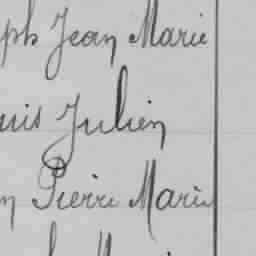 ph Jean Marie
uis Julien
n Pierre Marie